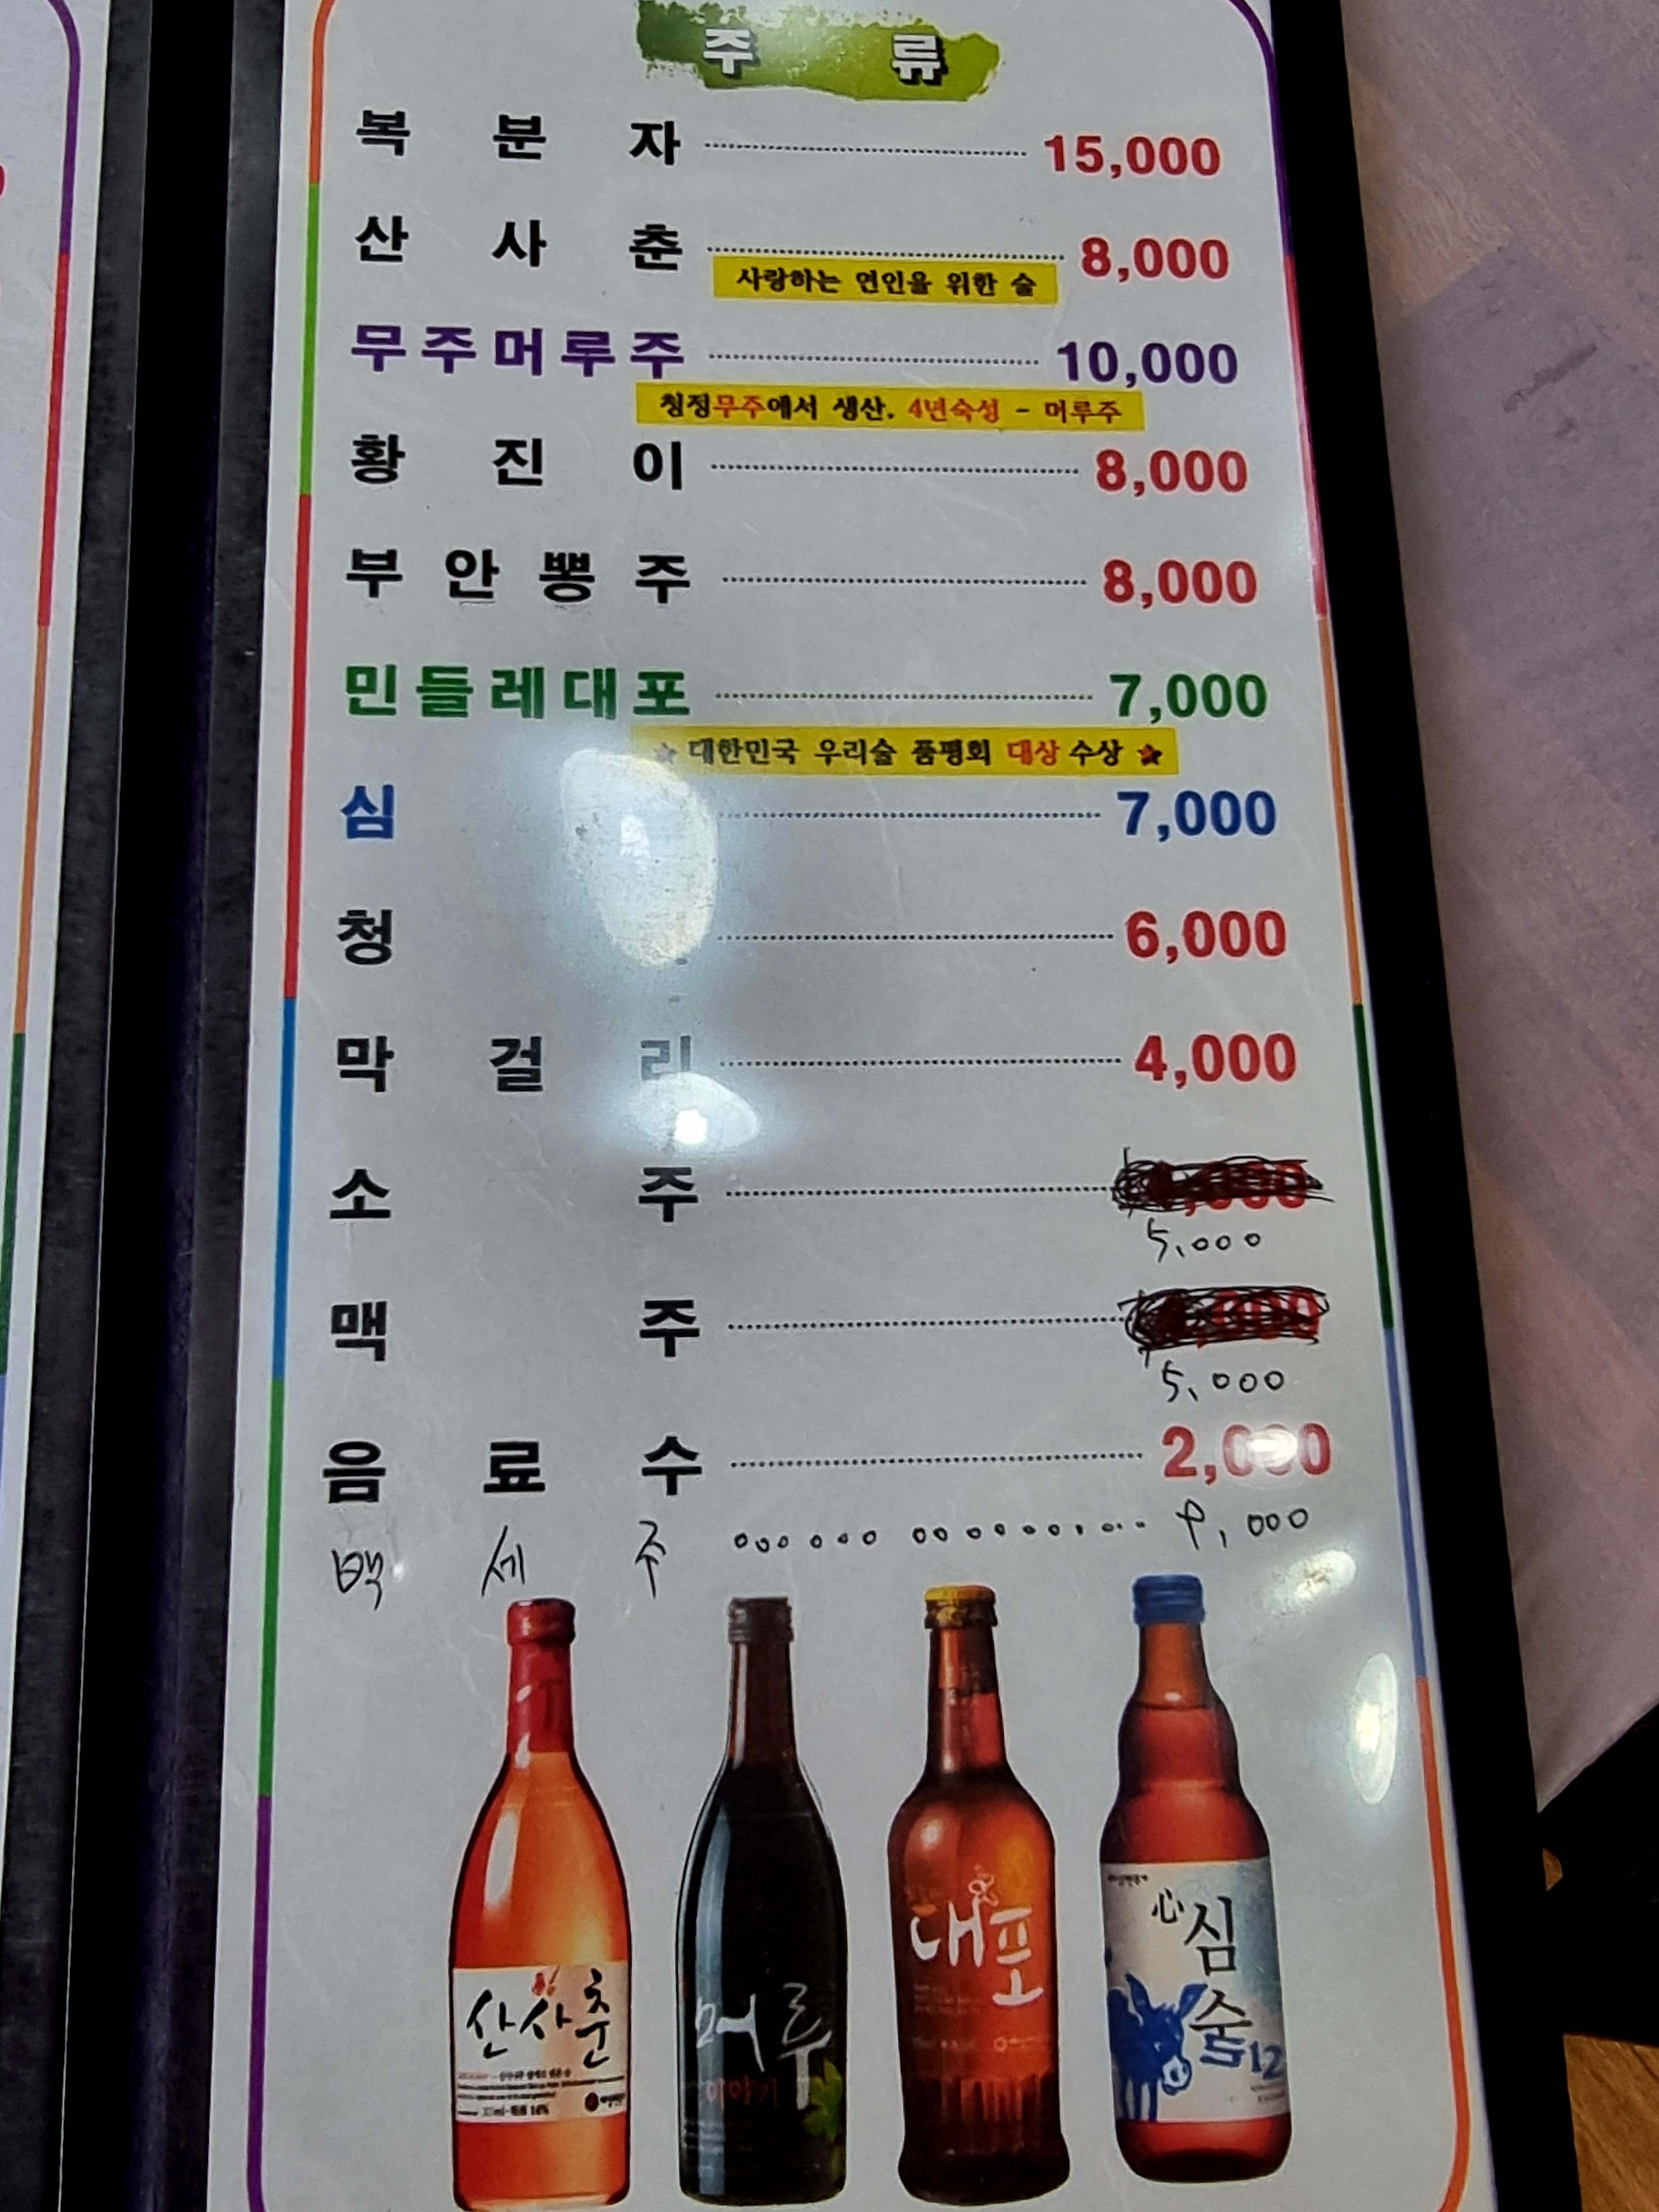 주 류
복 분 자 15,000
산 사 춘 8,000
사랑하는 연인을 위한 술
무주머루주 10,000
청정무주에서 생산. 4년숙성 - 머루주
황 진 이 8,000
부 안 뽕 주 8,000
민들레대포 7,000
★ 대한민국 우리술 품평회 대상 수상 ★
심 7,000
청 6,000
막 걸 리 4,000
소 주
5,000
맥 주
5,000
음 료 수 2,000
백 세 주 9,000
산사춘
머루
이야기
대포
心 심
술
12